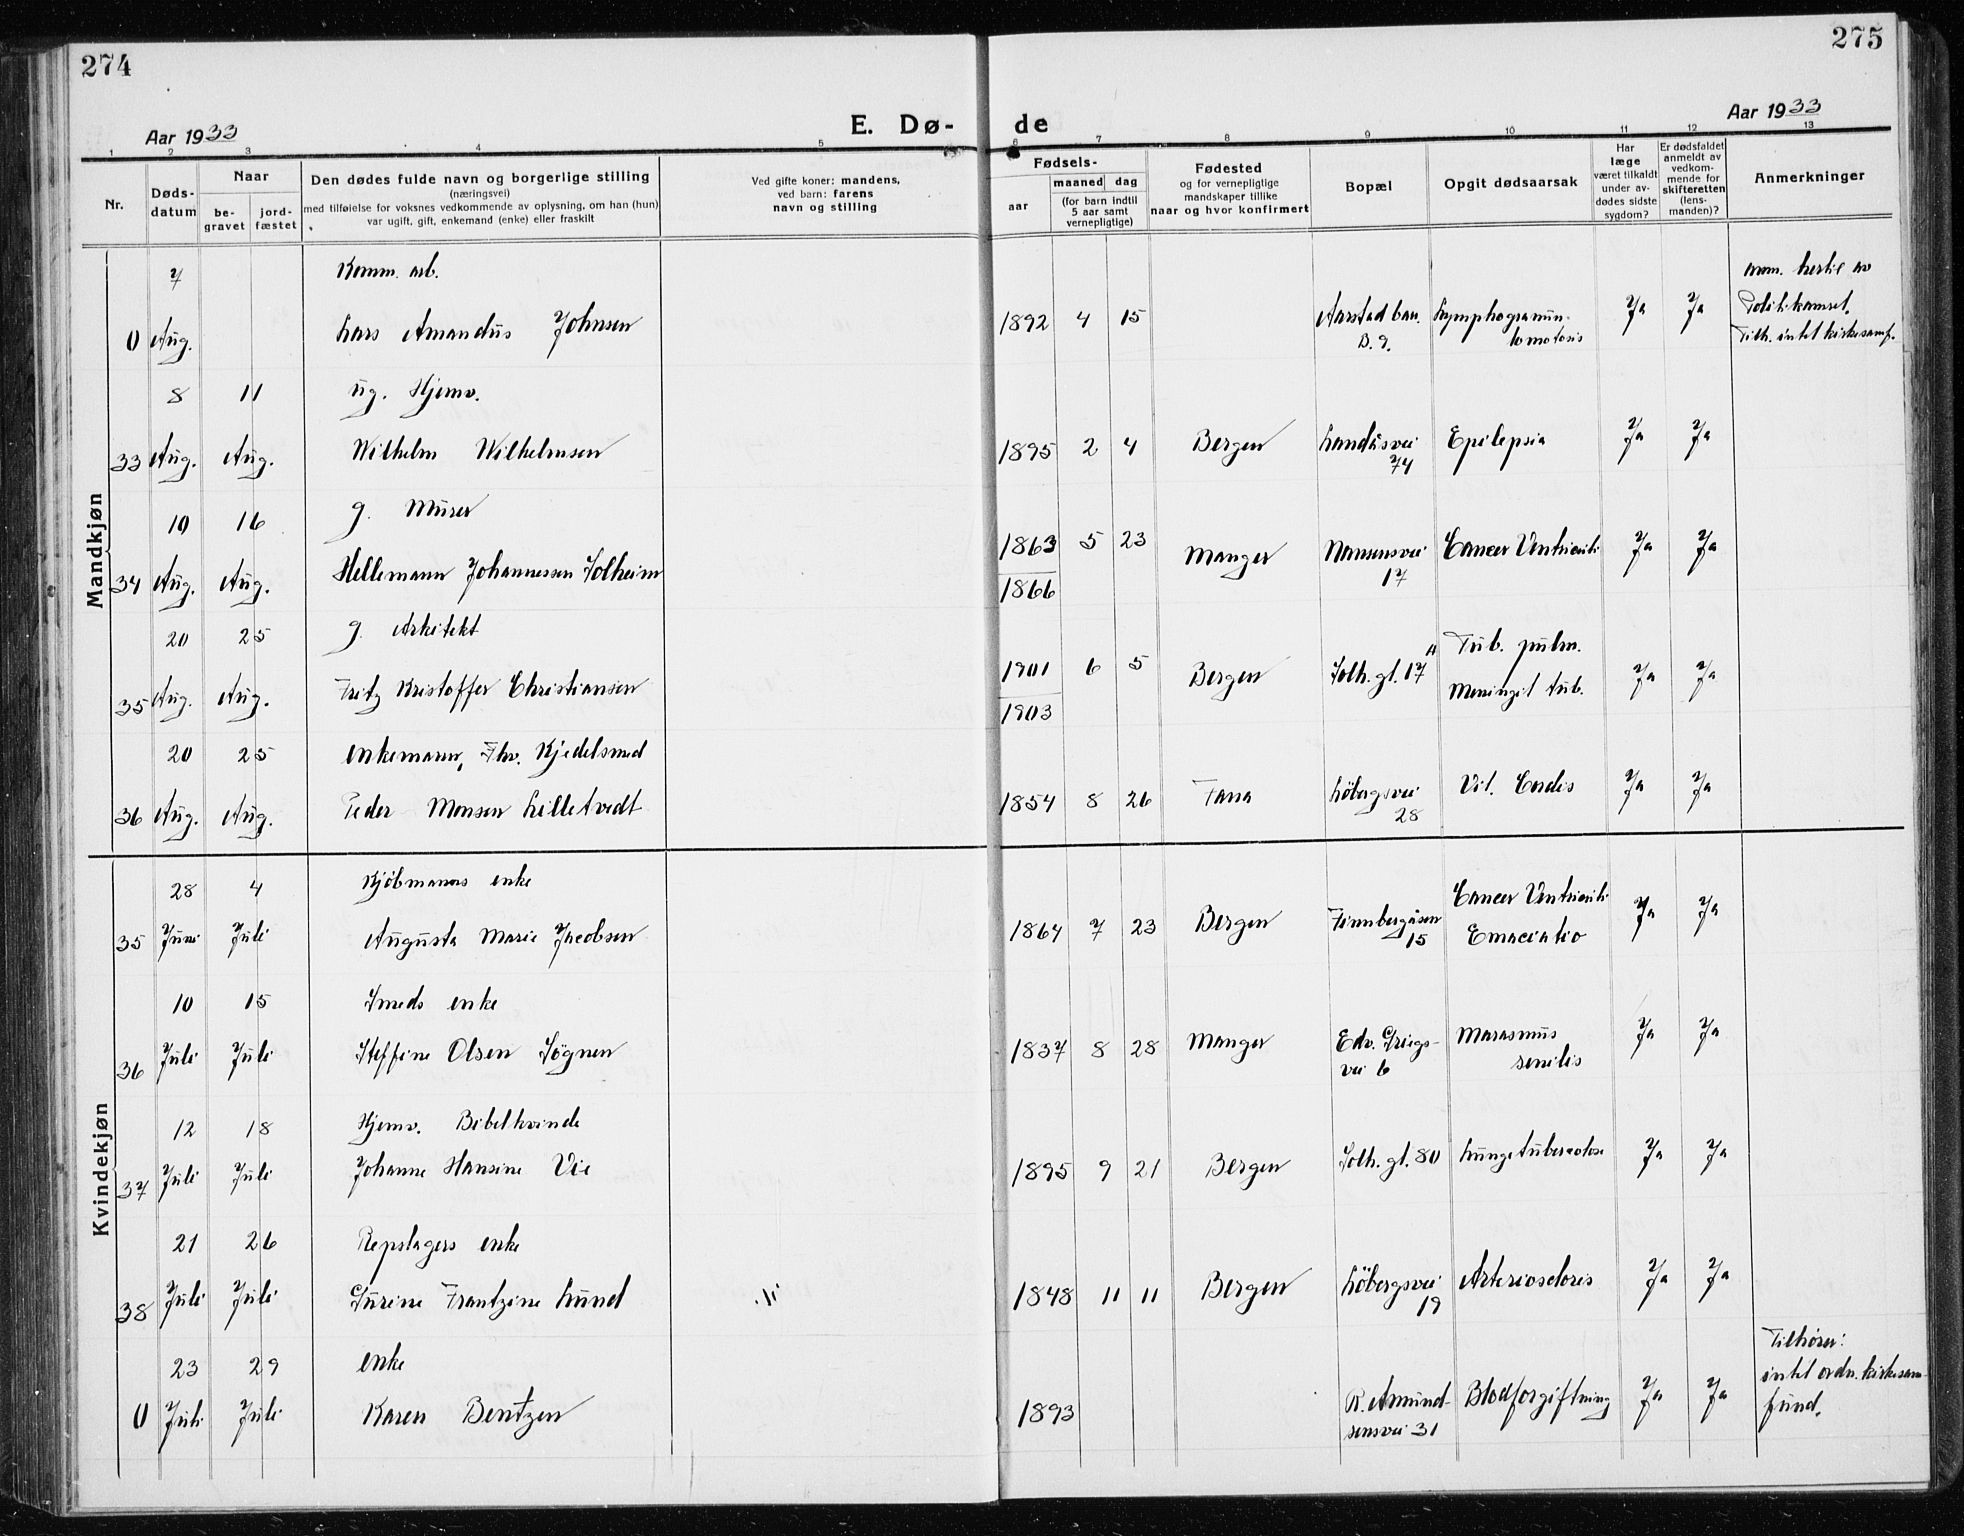 274
275
Aar 1933
E. Dø-
de
Aar 1933
1 2 3 4 5 6 7 8 9 10 11 12 13
Nr.
Døds-
datum
Naar
be-
gravet
jord-
fæstet
Den dødes fulde navn og borgerlige stilling
(næringsvei)
med tilføielse for voksnes vedkommende av oplysning, om han (hun)
var ugift, gift, enkemand (enke) eller fraskilt
Ved gifte koner: mandens,
ved barn: farens
navn og stilling
Fødsels-
aar
maaned
dag
(for barn indtil
5 aar samt
vernepligtige)
Fødested
og for vernepligtige
mandskaper tillike
naar og hvor konfirmert
Bopæl
Opgit dødsaarsak
Har
læge
været tilkaldt
under av-
dødes sidste
sygdom?
Er dødsfaldet
anmeldt av
vedkom-
mende for
skifteretten
(lens-
manden)?
Anmerkninger
Mandkjøn
7 Komm. arb.
0 Aug. Lars Amandus Johnsen 1892 4 15 Aarstad bar.
B. 9. Lymphogranun-
lomatosis Ja Ja
Politikamret.
Tilh. intet kirkesamf.
8 11 ug. Hjemv.
33 Aug. Aug. Wilhelm Wilhelmsen 1895 2 4 Bergen Landåsvei
74 Epilepsia Ja Ja
10 16 g. Murer
34 Aug. Aug. Hellemann Johannessen Solheim 1863 5 23 Manger Nansensvei
17 Cancer Ventriculi Ja Ja
1866
20 25 g. Arkitekt
35 Aug. Aug. Fritz Kristoffer Christiansen 1901 6 5 Bergen Solh. gt. 17 A Tub. pulm.
Meningit tub. Ja Ja
1903
20 25 enkemann, Fhv. Kjedelsmed
36 Aug. Aug. Peder Monsen Lilletvedt 1854 8 26 Fana Løbergsvei
28 Vit. Cordis Ja Ja
Kvindekjøn
28 4 Kjøbmanns enke
35 Juni Juli Augusta Marie Jacobsen 1864 7 23 Bergen Finnbergåsen
15 Cancer Ventriculi
Emaciatio Ja Ja
10 15 Smeds enke
36 Juli Juli Steffine Olsen Søgnen 1837 8 28 Manger Edv. Griegs-
vei 6 Marasmus
senilis Ja Ja
12 18 Hjemv. Bibelkvinde
37 Juli Juli Johanne Hansine Vie 1895 9 21 Bergen Solh. gt. 80 Lungetuberculose Ja Ja
21 26 Repslagers enke
38 Juli Juli Gurine Frantzine Lund 1848 11 11 Bergen Løbergsvei
19 Arterioscloris Ja Ja
23 29 enke
0 Juli Juli Karen Bentzen 1893 R. Amund-
sensvei 31 Blodforgiftning Ja Ja
Tilhører:
intet ordn. kirkesam-
fund.